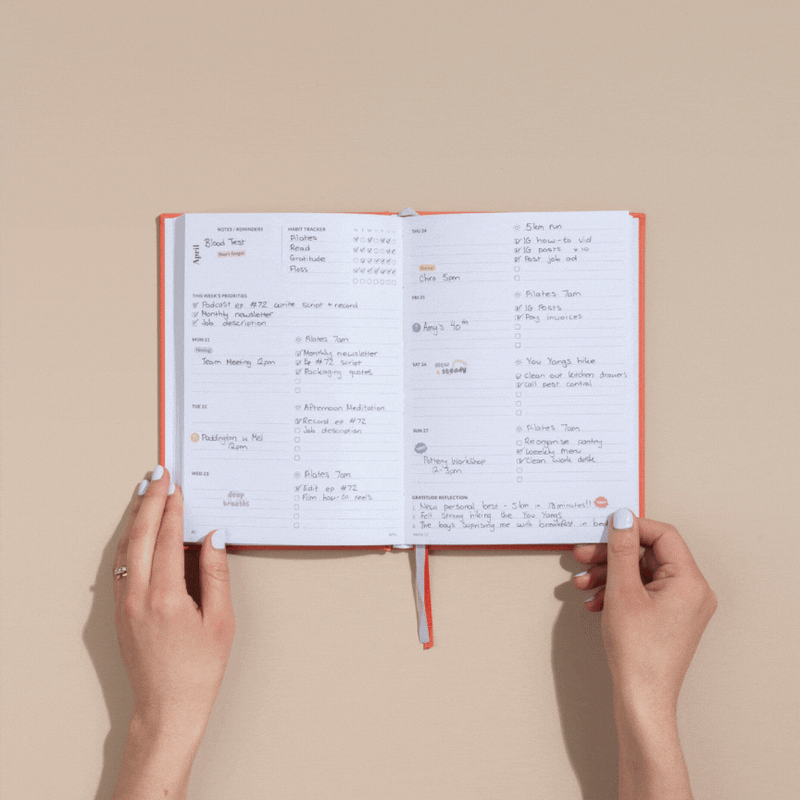 April
NOTES / REMINDERS
Blood Test
Don't forget
HABIT TRACKER
Pilates
Read
Gratitude
Floss
THIS WEEK'S PRIORITIES
Podcast ep #72 write script + record
Monthly newsletter
Job description
MON 21
Meeting
Team Meeting 12pm
Pilates 7am
Monthly newsletter
Ep #72 script
Packaging quotes
TUE 22
Paddington w Mel
12pm
Afternoon Meditation
Record ep #72
Job description
WED 23
deep
breaths
Pilates 7am
Edit ep #72
Film how-to reels
THU 24
Chiro 5pm
5km run
IG how-to vid
IG posts x 10
Post job ad
FRI 25
Amy's 40th
Pilates 7am
IG Posts
Pay invoices
SAT 26
steady
You Yangs hike
Clean out kitchen drawers
Call pest control
SUN 27
Pottery Workshop
2-3pm
Pilates 7am
Reorganise pantry
Weekly menu
Clean work desk
GRATITUDE REFLECTION
1. New personal best - 5km in 18minutes!!
2. Felt strong hiking the You Yangs
3. The boys suprising me with breakfast in bed